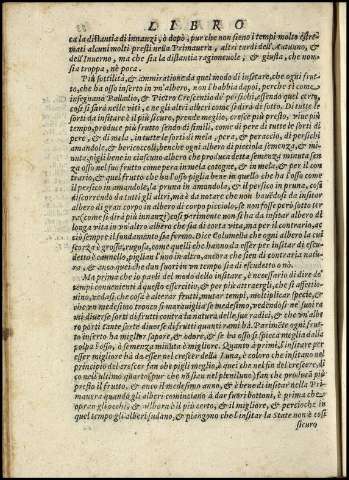 LIBRO
ca la distantia di innanzi, ò dapò, pur che non sieno i tempi molto estre
mati alcuni molti presti nella Primauera, altri tardi dell'Autunno, &
dell'Inuerno, ma che sia la distantia ragioneuole, & giusta, che non
sia troppa, nè poca.
Più sottilità, & ammiratione dà quel modo di insitare, che ogni frut
to, che ha osso inserto in vn'albero, non l'habbia dapoi, perche sì come
insegnana Palladio, & Pietro Crescentio de' persichi, essendo quel
cosa si farà nelle viti, e ne gli altri alberi come si dirà di sotto. Di tutte le
sorti da insitare è il più sicuro, prende meglio, cresce più presto, viue più
tempo, produce più frutto sendo di simili, come di pere di tutte le sorti di
pere, & di mela, in tutte le sorti di mela, pera, & peraccio, di persichi
amandole, & bericoccoli, benche ogni albero di piccola semenza, & mi
nuta, pigli bene in ciascuno albero che produca detta semenza minuta senza
osso nel suo frutto come pera in mela cotogne, & in mela, & per il con
trario, & quel frutto che hà l'osso piglia bene in quello che hà l'osso come
il persico in amandole, la pruna in amandola, & il persico in pruna, così
discorrendo da tutti gli altri, ma è da notare che non hauendosi da insitar
albero di gran corpo in albero di corpo picciolo, se non fosse però sotto ter
ra (come si dirà più innanzi) così parimente non si ha da insitar albero di
longa vita in vn'altro albero che sia di corta vita, ma per il contrario, ac
ciò sempre il fundamento sia fermo. Dice Columella che ogni albero la cui
scorza è grossa, rugosa, come quelli che hanno da esser per insitar di scu
detto è commodo, pigliano l'uno in altro, ancora che sien di contraria natu
ra, & anco quei che dan fuori in vn tempo sia di scudetto o nò.
Ma prima che io parli del modo dello insitare, è necessario di dire de'
tempi conuenienti a questo essercitio, & per più attraergli, che si affettio
nino, vedasi, che cosa è alterar frutti, mutar tempi, moltiplicar specie, &
che vn medesimo tronco si marauigli se medesimo, vedendosi ne' suoi ra
mi diuerse sorti di frutti contra la natura delle sue radici, & che vn'albe
ro porti tante sorte diuerse di frutti quanti rami hà. Parimẽte ogni frut
to inserto ha miglior sapore, & odore, & se ha osso si spicca meglio dalla
polpa l'osso, è semenza minuta è migliore. Quanto à primi l'insitare per
esser migliore ha da esser nel crescer della Luna, è coloro che insitano nel
principio del crescer fan che dopò molti anni, è quei che nel fin del crescere, di
co nell'ultimo quarto (pur che nõ sian nel pleniluno) fan che produca più
presto il frutto, & anco il medesimo anno, & è bene di insitar nella Pri
mauera quando gli alberi cominciano à dar fuori bottoni, è prima che
apran gli occhi & all'hora è il più certo, & il migliore, & percioche in
quel tempo gli alberi sudano, & piangono che l'insitar la State non è così
sicuro